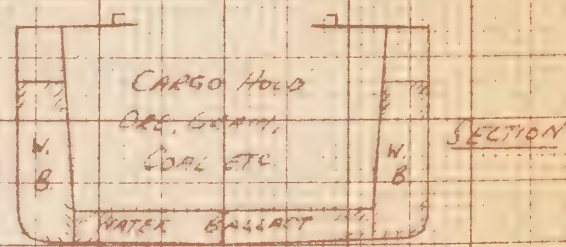 CARGO HOLD
ORE, GRAIN,
COAL ETC
SECTION
W.
B
W.
B
WATER BALLAST